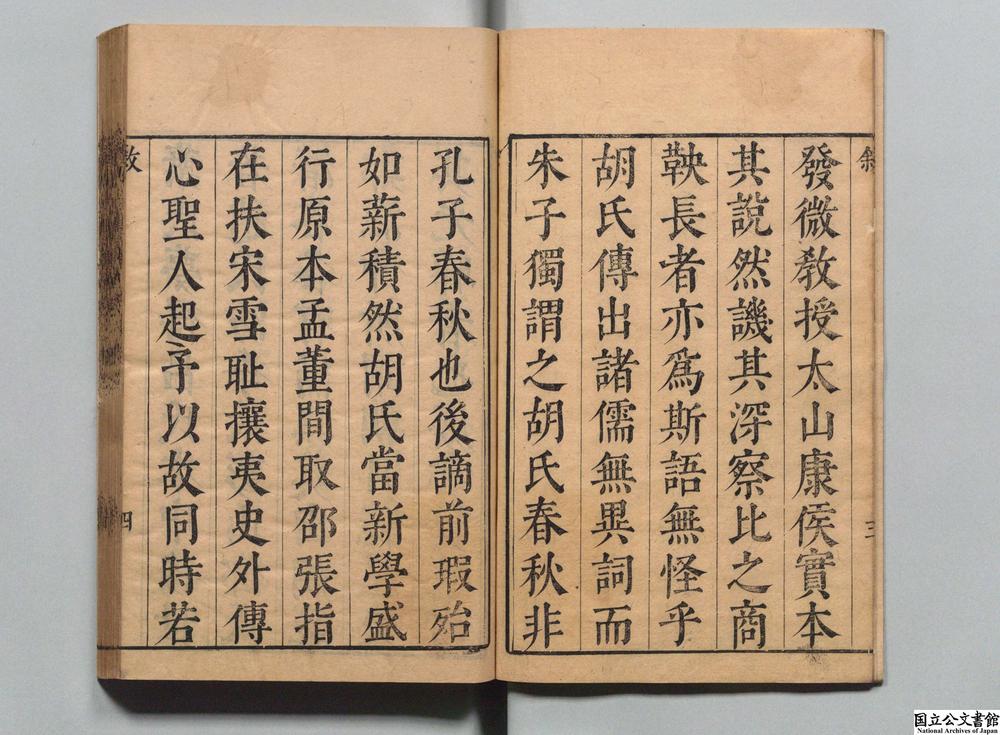 發微敎授太山康侯實本
其說然譏其深察比之商
鞅長者亦爲斯語無怪乎
胡氏傳出諸儒無異詞而
朱子獨謂之胡氏春秋非
孔子春秋也後謫前瑕殆
如薪積然胡氏當新學盛
行原本孟董間取邵張指
在扶宋雪耻攘夷史外傳
心聖人起予以故同時若
四
国立公文書館
National Archives of Japan